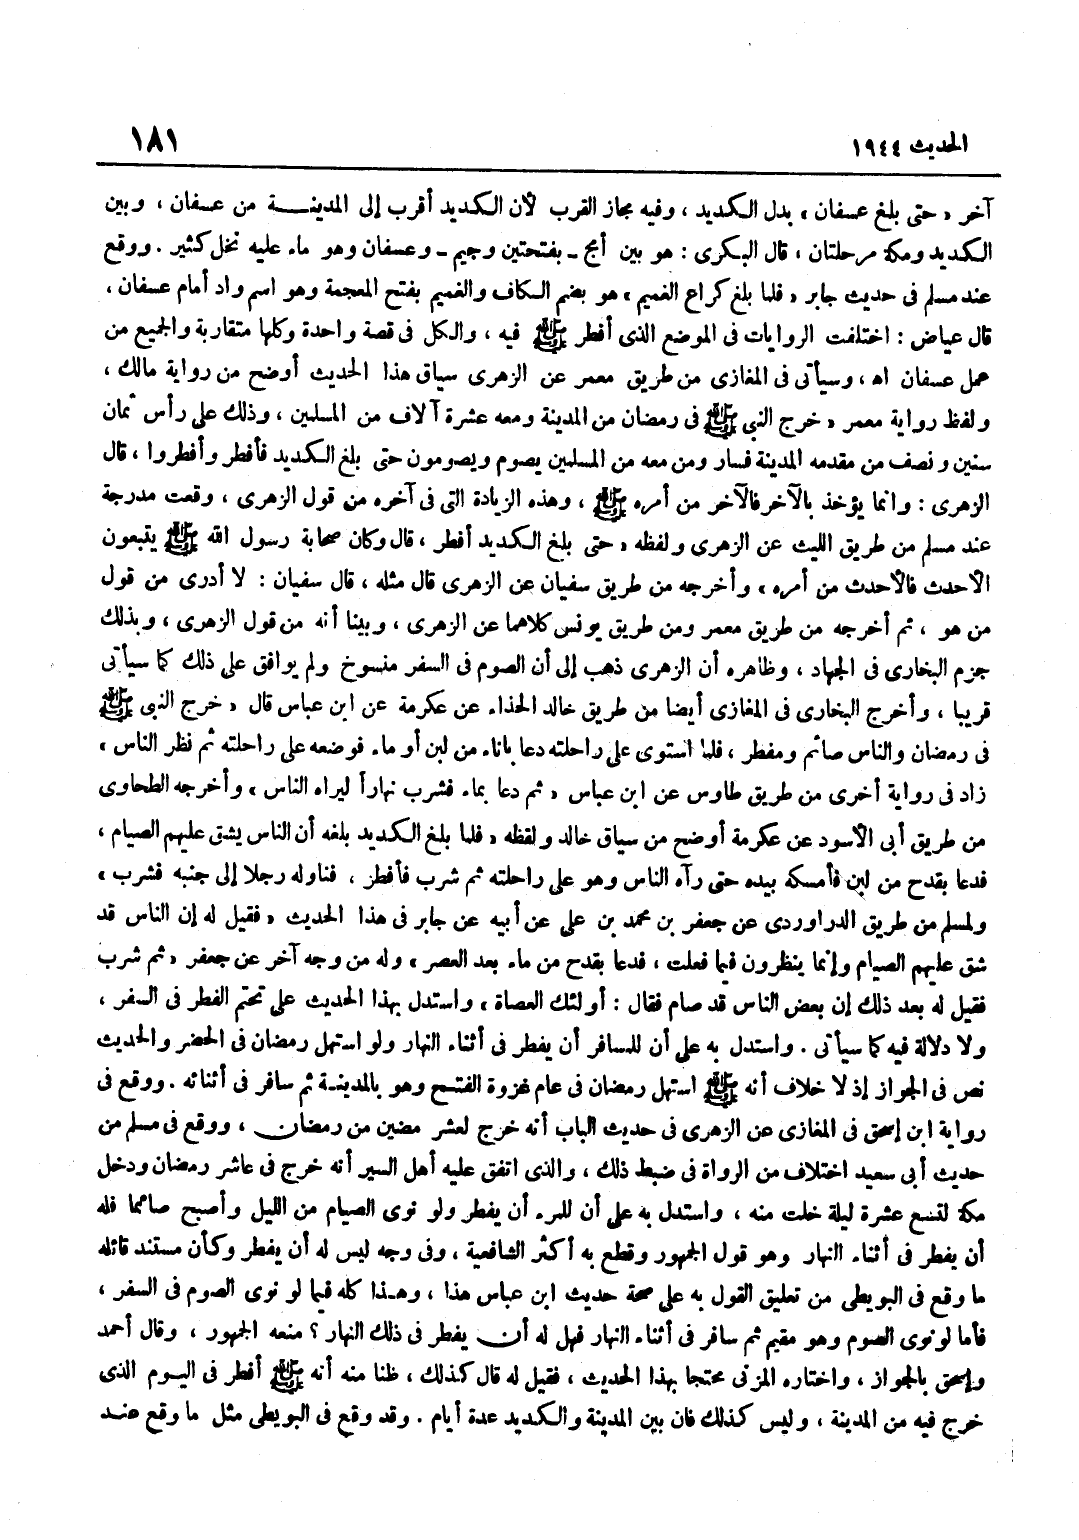 الحديث ١٩٤٤ ١٨١
آخر « حتى بلغ عسفان » بدل الكديد ، وفيه مجاز القرب لأن الكديد أقرب إلى المدينة من عسفان ، وبين
الكديد ومكة مرحلتان ، قال البكرى : هو بين أمج ـ بفتحتين وجيم ـ وعسفان وهو ماء عليه نخل كثير . ووقع
عند مسلم فى حديث جابر « فلما بلغ كراع الغميم » هو بضم الكاف والغميم بفتح المعجمة وهو اسم واد أمام عسفان ،
قال عياض : اختلفت الروايات فى الموضع الذى أفطر ﷺ فيه ، والكل فى قصة واحدة وكلها متقاربة والجميع من
عمل عسفان اه ، وسيأتى فى المغازى من طريق معمر عن الزهرى سياق هذا الحديث أوضح من رواية مالك ،
ولفظ رواية معمر « خرج النبى ﷺ فى رمضان من المدينة ومعه عشرة آلاف من المسلمين ، وذلك على رأس ثمان
سنين ونصف من مقدمه المدينة فسار ومن معه من المسلمين يصوم ويصومون حتى بلغ الكديد فأفطر وأفطروا ، قال
الزهرى : وانما يؤخذ بالآخر فالآخر من أمره ﷺ ، وهذه الزيادة التى فى آخره من قول الزهرى ، وقعت مدرجة
عند مسلم من طريق الليث عن الزهرى ولفظه « حتى بلغ الكديد أفطر ، قال وكان صحابة رسول الله ﷺ يتبعون
الأحدث فالأحدث من أمره » وأخرجه من طريق سفيان عن الزهرى قال مثله ، قال سفيان : لا أدرى من قول
من هو ، ثم أخرجه من طريق معمر ومن طريق يونس كلاهما عن الزهرى ، وبينا أنه من قول الزهرى ، وبذلك
جزم البخارى فى الجهاد ، وظاهره أن الزهرى ذهب إلى أن الصوم فى السفر منسوخ ولم يوافق على ذلك كما سيأتى
قريبا ، وأخرج البخارى فى المغازى أيضا من طريق خالد الحذاء عن عكرمة عن ابن عباس قال « خرج النبى ﷺ
فى رمضان والناس صائم ومفطر ، فلما استوى على راحلته دعا باناء من لبن أو ماء فوضعه على راحلته ثم نظر الناس »
زاد فى رواية أخرى من طريق طاوس عن ابن عباس « ثم دعا بماء فشرب نهاراً ليراه الناس » وأخرجه الطحاوى
من طريق أبى الأسود عن عكرمة أوضح من سياق خالد ولفظه « فلما بلغ الكديد بلغه أن الناس يشق عليهم الصيام ،
فدعا بقدح من لبن فأمسكه بيده حتى رآه الناس وهو على راحلته ثم شرب فأفطر ، فناوله رجلا إلى جنبه فشرب »
ولمسلم من طريق الدراوردى عن جعفر بن محمد بن على عن أبيه عن جابر فى هذا الحديث « فقيل له إن الناس قد
شق عليهم الصيام وإنما ينظرون فيما فعلت ، فدعا بقدح من ماء بعد العصر » وله من وجه آخر عن جعفر « ثم شرب
فقيل له بعد ذلك إن بعض الناس قد صام فقال : أولئك العصاة » واستدل بهذا الحديث على تحتم الفطر فى السفر ،
ولا دلالة فيه كما سيأتى . واستدل به على أن للسافر أن يفطر فى أثناء النهار ولو استهل رمضان فى الحضر والحديث
نص فى الجواز إذ لا خلاف أنه ﷺ استهل رمضان فى عام غزوة الفتح وهو بالمدينة ثم سافر فى أثنائه . ووقع فى
رواية ابن إسحق فى المغازى عن الزهرى فى حديث الباب أنه خرج لعشر مضين من رمضان ، ووقع فى مسلم من
حديث أبى سعيد اختلاف من الرواة فى ضبط ذلك ، والذى اتفق عليه أهل السير أنه خرج فى عاشر رمضان ودخل
مكة لتسع عشرة ليلة خلت منه ، واستدل به على أن للمرء أن يفطر ولو نوى الصيام من الليل وأصبح صائما فله
أن يفطر فى أثناء النهار وهو قول الجمهور وقطع به أكثر الشافعية ، وفى وجه ليس له أن يفطر وكأن مستند قائله
ما وقع فى البويطى من تعليق القول به على صحة حديث ابن عباس هذا ، وهذا كله فيما لو نوى الصوم فى السفر ،
فأما لو نوى الصوم وهو مقيم ثم سافر فى أثناء النهار فهل له أن يفطر فى ذلك النهار ؟ منعه الجمهور ، وقال أحمد
وإسحق بالجواز ، واختاره المزنى محتجا بهذا الحديث ، فقيل له قال كذلك ، ظنا منه أنه ﷺ أفطر فى اليوم الذى
خرج فيه من المدينة ، وليس كذلك فان بين المدينة والكديد عدة أيام . وقد وقع فى البويطى مثل ما وقع عند